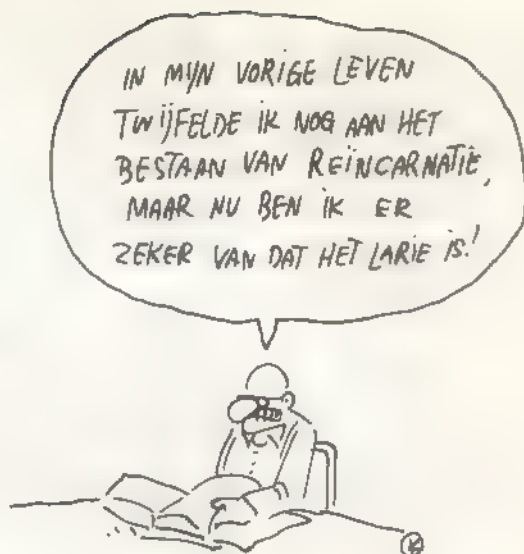 IN MIJN VORIGE LEVEN
TWIJFELDE IK NOG AAN HET
BESTAAN VAN REÏNCARNATIE,
MAAR NU BEN IK ER
ZEKER VAN DAT HET LARIE IS!